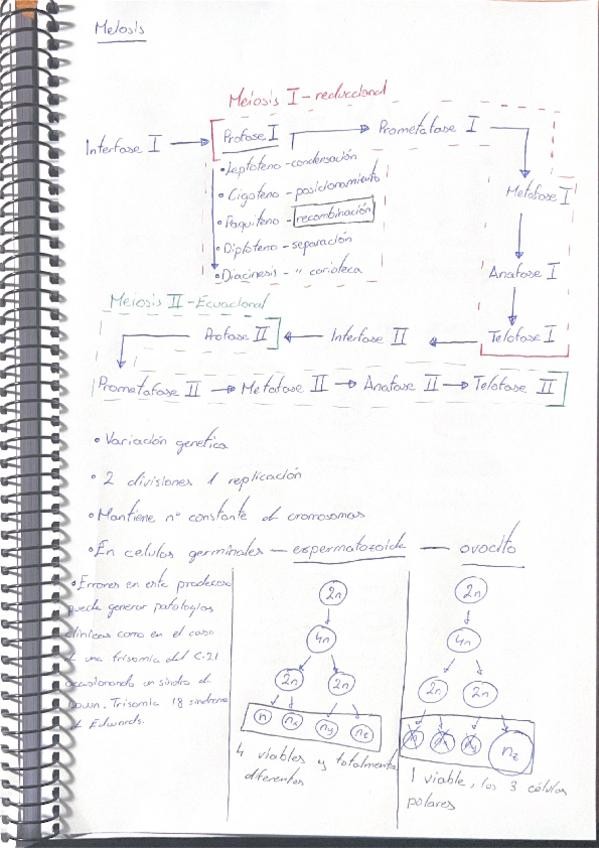 Meiosis
Meiosis I - reduccional
Interfase I → Profase I → Prometafase I
• Leptoteno - condensación
• Cigoteno - posicionamiento
• Paquiteno - recombinación
• Diploteno - separación
• Diacinesis - " carioteca
Metafase I
Anafase I
Meiosis II - Ecuacional
Profase II ← Interfase II ← Telofase I
Prometafase II → Metafase II → Anafase II → Telofase II
• Variación genetica
• 2 divisiones 1 replicación
• Mantiene nº constante d cromosomas
• En celulas germinales — espermatozoide — ovocito
• Errores en este
puede generar patologías
clinicas como en el caso
d una trisomia del C-21
ocasionando un sindro d
Down. Trisomia 18 sindrome
d Edwards.
2n
4n
2n 2n
n nx ny nz
4 viables y totalmente
diferentes
2n
4n
2n 2n
n nx ny nz
1 viable, los 3 células
polares